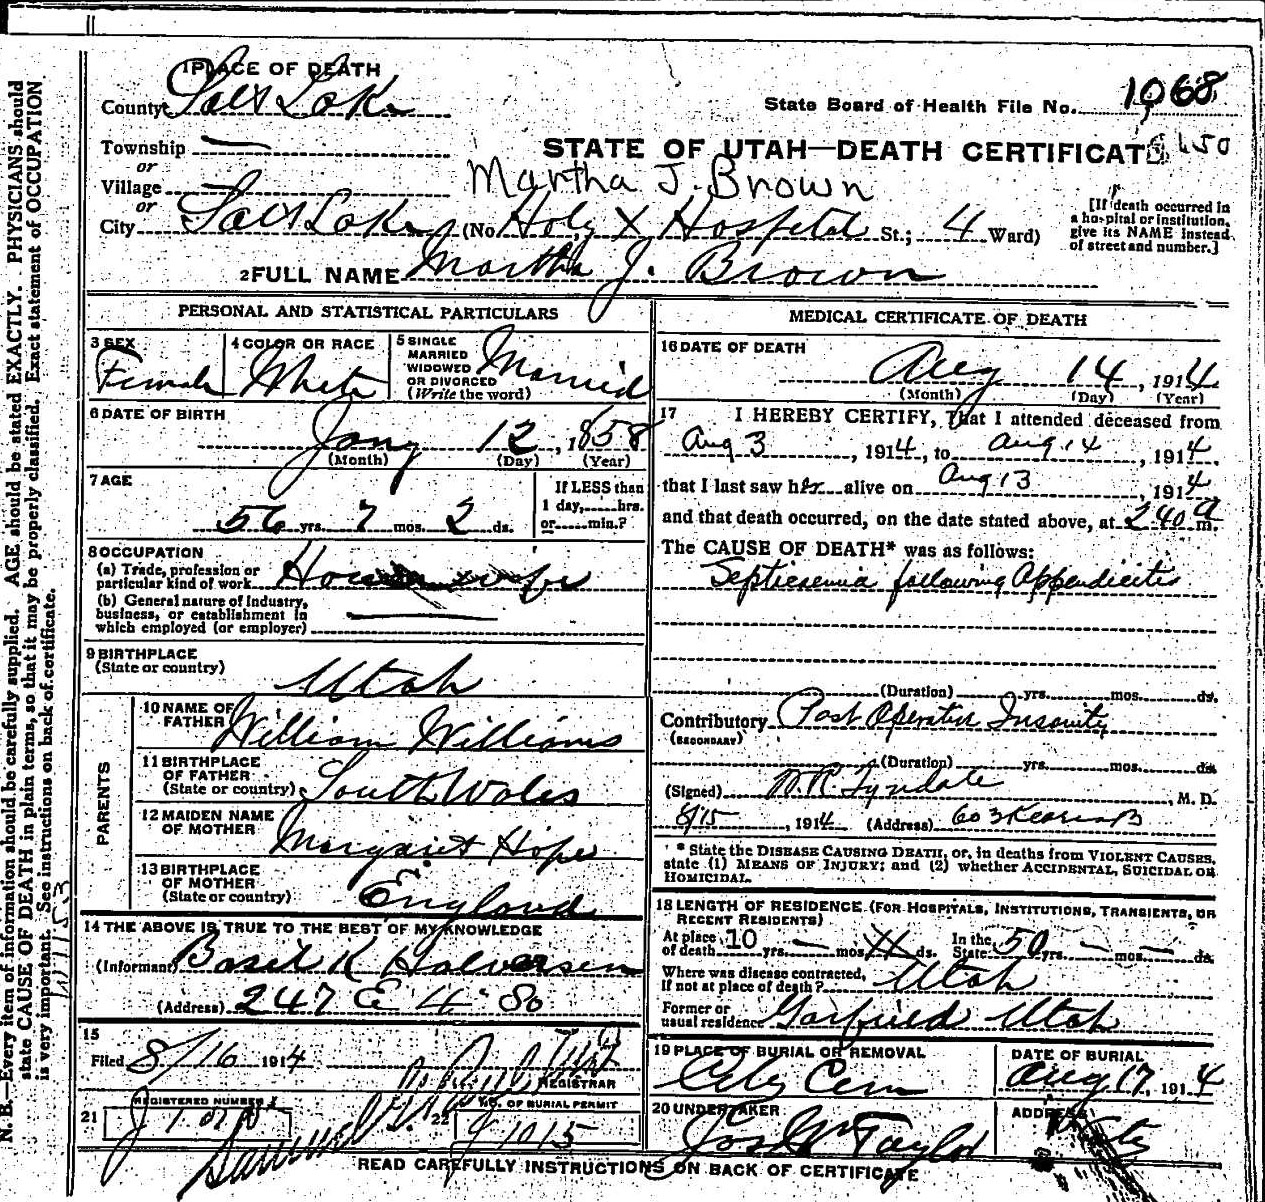 1 PLACE OF DEATH
County Salt Lake
State Board of Health File No. 1068
Township —
or
STATE OF UTAH—DEATH CERTIFICATE
Martha J. Brown
Village
or
City Salt Lake (No. Holy X Hospital St.; 4 Ward)
[If death occurred in
a hospital or institution,
give its NAME instead
of street and number.]
2 FULL NAME Martha J. Brown
PERSONAL AND STATISTICAL PARTICULARS
3 SEX
Female
4 COLOR OR RACE
White
5 SINGLE
MARRIED
WIDOWED
OR DIVORCED
(Write the word)
Married
6 DATE OF BIRTH
Jany 12, 1858
(Month) (Day) (Year)
7 AGE
56 yrs. 7 mos. 2 ds.
If LESS than
1 day, hrs.
or min.?
8 OCCUPATION
(a) Trade, profession or
particular kind of work Housewife
(b) General nature of industry,
business, or establishment in
which employed (or employer)
9 BIRTHPLACE
(State or country)
Utah
PARENTS
10 NAME OF
FATHER William Williams
11 BIRTHPLACE
OF FATHER
(State or country) South Wales
12 MAIDEN NAME
OF MOTHER Margaret Hope
13 BIRTHPLACE
OF MOTHER
(State or country) England
14 THE ABOVE IS TRUE TO THE BEST OF MY KNOWLEDGE
(Informant) Basil K Halversen
(Address) 247 E 4" So
15
Filed 8/16 1914
REGISTRAR
21 REGISTERED NUMBER
22 NO. OF BURIAL PERMIT
J 1015
MEDICAL CERTIFICATE OF DEATH
16 DATE OF DEATH
Aug 14, 1914
(Month) (Day) (Year)
17 I HEREBY CERTIFY, That I attended deceased from
Aug 3, 1914, to Aug 14, 1914,
that I last saw her alive on Aug 13, 1914
and that death occurred, on the date stated above, at 240 a m.
The CAUSE OF DEATH* was as follows:
Septicaemia following Appendicitis
(Duration) yrs. mos. ds.
Contributory Post Operative Insanity
(SECONDARY)
(Duration) yrs. mos. ds.
(Signed) W.R. Tyndale, M. D.
8/15, 1914 (Address) 603 Kearns B
* State the DISEASE CAUSING DEATH, or, in deaths from VIOLENT CAUSES,
state (1) MEANS OF INJURY; and (2) whether ACCIDENTAL, SUICIDAL OR
HOMICIDAL.
18 LENGTH OF RESIDENCE (FOR HOSPITALS, INSTITUTIONS, TRANSIENTS, OR
RECENT RESIDENTS)
At place
of death 10 yrs. — mos. ds. In the
State 50 yrs. — mos. — ds.
Where was disease contracted,
If not at place of death? Utah
Former or
usual residence Garfield Utah
19 PLACE OF BURIAL OR REMOVAL
City Cem
DATE OF BURIAL
Aug 17, 1914
20 UNDERTAKER
Jos Wm Taylor
ADDRESS
City
READ CAREFULLY INSTRUCTIONS ON BACK OF CERTIFICATE
N. B.—Every item of information should be carefully supplied. AGE should be stated EXACTLY. PHYSICIANS should
state CAUSE OF DEATH in plain terms, so that it may be properly classified. Exact statement of OCCUPATION
is very important. See instructions on back of certificate.